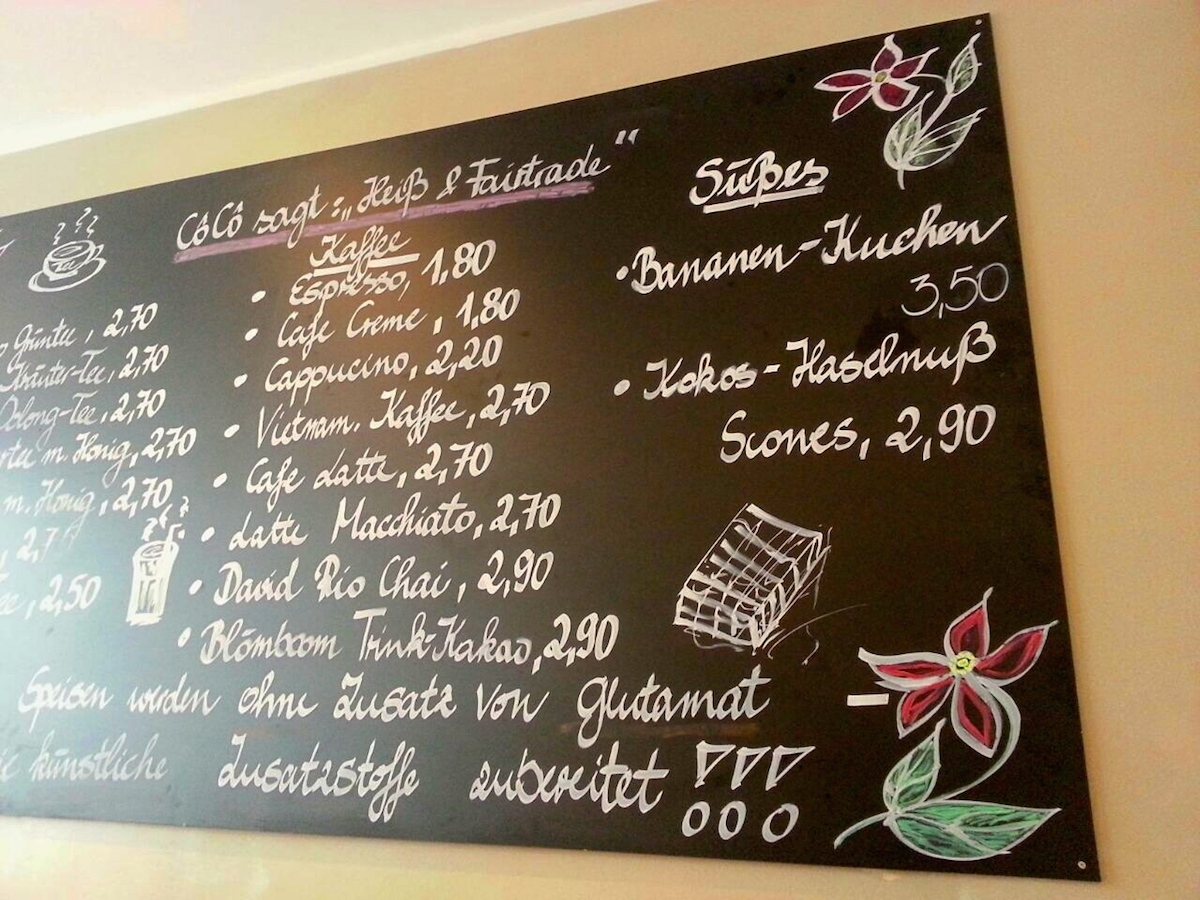 CôCô sagt: „Heiß & Fairtrade"
Grüntee, 2,70
Kräuter-Tee, 2,70
Oolong-Tee, 2,70
m. Honig, 2,70
m. Honig, 2,70
2,50
Tee
Kaffee
• Espresso, 1,80
• Cafe Creme, 1,80
• Cappucino, 2,20
• Vietnam. Kaffee, 2,70
• Cafe Latte, 2,70
• Latte Macchiato, 2,70
• David Rio Chai, 2,90
• Blömboom Trink-Kakao, 2,90
Süßes
• Bananen-Kuchen
3,50
• Kokos-Haselnuß
Scones, 2,90
Speisen werden ohne Zusatz von Glutamat
künstliche Zusatzstoffe zubereitet !!!